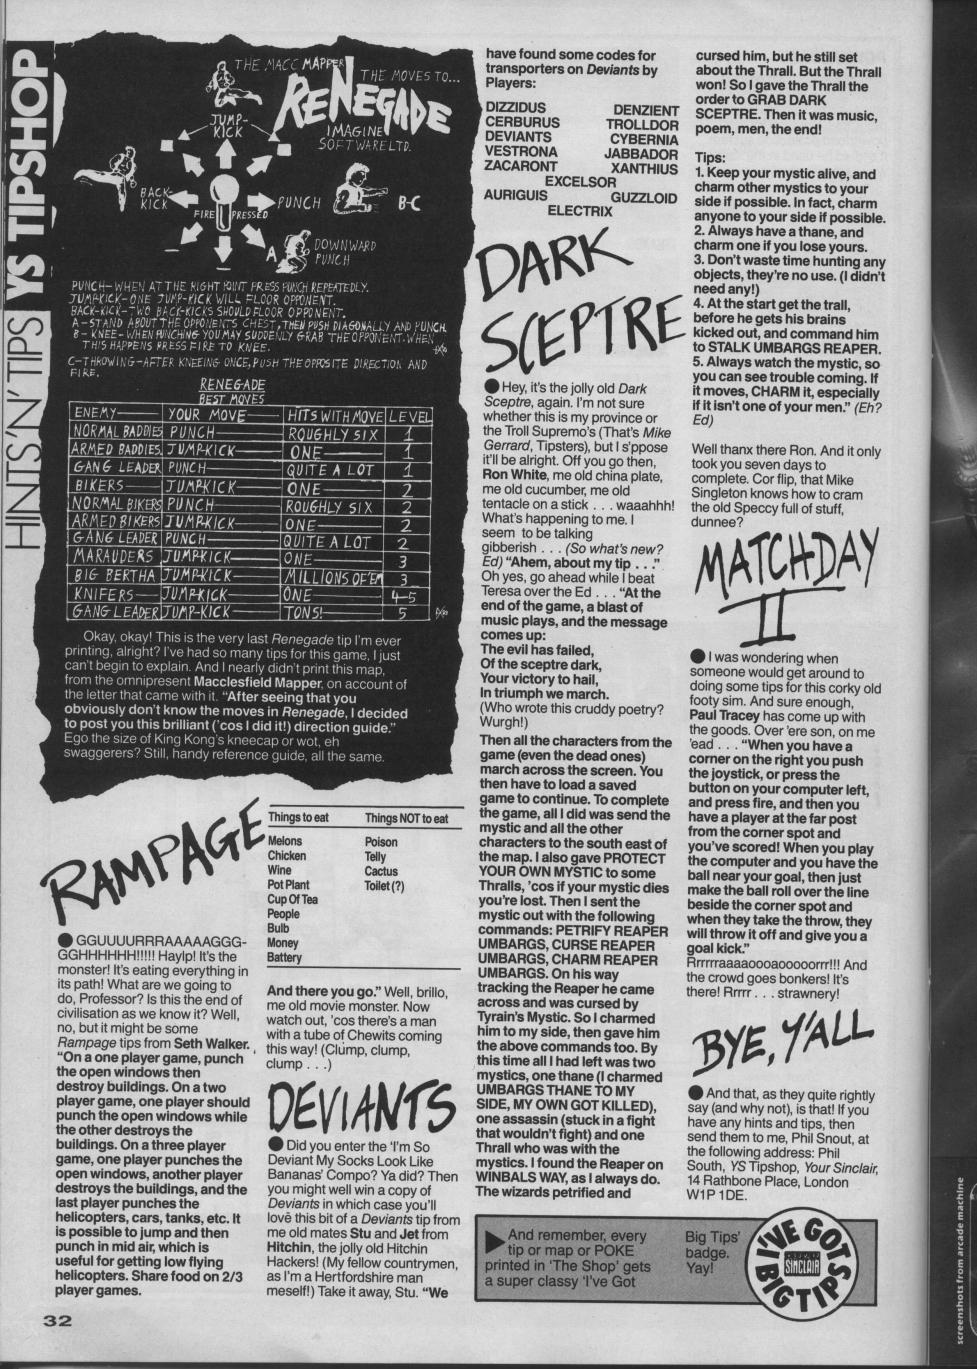 HINTS'N'TIPS YS TIPSHOP
THE MACC MAPPER
THE MOVES TO...
RENEGADE
IMAGINE
SOFTWARE LTD.
JUMP-
KICK
BACK-
KICK
PUNCH
B-C
FIRE PRESSED
A
DOWNWARD
PUNCH
PUNCH-WHEN AT THE RIGHT POINT PRESS PUNCH REPEATEDLY.
JUMP-KICK-ONE JUMP-KICK WILL FLOOR OPPONENT.
BACK-KICK-TWO BACK-KICKS SHOULD FLOOR OPPONENT.
A-STAND ABOUT THE OPPONENTS CHEST, THEN PUSH DIAGONALLY AND PUNCH.
B-KNEE-WHEN PUNCHING YOU MAY SUDDENLY GRAB THE OPPONENT. WHEN
THIS HAPPENS PRESS FIRE TO KNEE.
C-THROWING-AFTER KNEEING ONCE, PUSH THE OPPOSITE DIRECTION AND
FIRE.
RENEGADE
BEST MOVES
ENEMY YOUR MOVE HITS WITH MOVE LEVEL
NORMAL BADDIES PUNCH ROUGHLY SIX 1
ARMED BADDIES JUMP-KICK ONE 1
GANG LEADER PUNCH QUITE A LOT 1
BIKERS JUMP-KICK ONE 2
NORMAL BIKERS PUNCH ROUGHLY SIX 2
ARMED BIKERS JUMP-KICK ONE 2
GANG LEADER PUNCH QUITE A LOT 2
MARAUDERS JUMP-KICK ONE 3
BIG BERTHA JUMP-KICK MILLIONS OF 'EM 3
KNIFERS JUMP-KICK ONE 4-5
GANG LEADER JUMP-KICK TONS! 5
Okay, okay! This is the very last Renegade tip I'm ever
printing, alright? I've had so many tips for this game, I just
can't begin to explain. And I nearly didn't print this map,
from the omnipresent Macclesfield Mapper, on account of
the letter that came with it. "After seeing that you
obviously don't know the moves in Renegade, I decided
to post you this brilliant ('cos I did it!) direction guide."
Ego the size of King Kong's kneecap or wot, eh
swaggerers? Still, handy reference guide, all the same.
RAMPAGE
GGUUUURRRAAAAAGGG-
GGHHHHHH!!!!! Haylp! It's the
monster! It's eating everything in
its path! What are we going to
do, Professor? Is this the end of
civilisation as we know it? Well,
no, but it might be some
Rampage tips from Seth Walker.
"On a one player game, punch
the open windows then
destroy buildings. On a two
player game, one player should
punch the open windows while
the other destroys the
buildings. On a three player
game, one player punches the
open windows, another player
destroys the buildings, and the
last player punches the
helicopters, cars, tanks, etc. It
is possible to jump and then
punch in mid air, which is
useful for getting low flying
helicopters. Share food on 2/3
player games.
Things to eat Things NOT to eat
Melons Poison
Chicken Telly
Wine Cactus
Pot Plant Toilet (?)
Cup Of Tea
People
Bulb
Money
Battery
And there you go." Well, brillo,
me old movie monster. Now
watch out, 'cos there's a man
with a tube of Chewits coming
this way! (Clump, clump,
clump . . .)
DEVIANTS
Did you enter the 'I'm So
Deviant My Socks Look Like
Bananas' Compo? Ya did? Then
you might well win a copy of
Deviants in which case you'll
love this bit of a Deviants tip from
me old mates Stu and Jet from
Hitchin, the jolly old Hitchin
Hackers! (My fellow countrymen,
as I'm a Hertfordshire man
meself!) Take it away, Stu. "We
have found some codes for
transporters on Deviants by
Players:
DIZZIDUS DENZIENT
CERBURUS TROLLDOR
DEVIANTS CYBERNIA
VESTRONA JABBADOR
ZACARONT XANTHIUS
EXCELSOR
AURIGUIS GUZZLOID
ELECTRIX
DARK
SCEPTRE
Hey, it's the jolly old Dark
Sceptre, again. I'm not sure
whether this is my province or
the Troll Supremo's (That's Mike
Gerrard, Tipsters), but I s'ppose
it'll be alright. Off you go then,
Ron White, me old china plate,
me old cucumber, me old
tentacle on a stick . . . waaahhh!
What's happening to me. I
seem to be talking
gibberish . . . (So what's new?
Ed) "Ahem, about my tip . . ."
Oh yes, go ahead while I beat
Teresa over the Ed . . . "At the
end of the game, a blast of
music plays, and the message
comes up:
The evil has failed,
Of the sceptre dark,
Your victory to hail,
In triumph we march.
(Who wrote this cruddy poetry?
Wurgh!)
Then all the characters from the
game (even the dead ones)
march across the screen. You
then have to load a saved
game to continue. To complete
the game, all I did was send the
mystic and all the other
characters to the south east of
the map. I also gave PROTECT
YOUR OWN MYSTIC to some
Thralls, 'cos if your mystic dies
you're lost. Then I sent the
mystic out with the following
commands: PETRIFY REAPER
UMBARGS, CURSE REAPER
UMBARGS, CHARM REAPER
UMBARGS. On his way
tracking the Reaper he came
across and was cursed by
Tyrain's Mystic. So I charmed
him to my side, then gave him
the above commands too. By
this time all I had left was two
mystics, one thane (I charmed
UMBARGS THANE TO MY
SIDE, MY OWN GOT KILLED),
one assassin (stuck in a fight
that wouldn't fight) and one
Thrall who was with the
mystics. I found the Reaper on
WINBALS WAY, as I always do.
The wizards petrified and
cursed him, but he still set
about the Thrall. But the Thrall
won! So I gave the Thrall the
order to GRAB DARK
SCEPTRE. Then it was music,
poem, men, the end!
Tips:
1. Keep your mystic alive, and
charm other mystics to your
side if possible. In fact, charm
anyone to your side if possible.
2. Always have a thane, and
charm one if you lose yours.
3. Don't waste time hunting any
objects, they're no use. (I didn't
need any!)
4. At the start get the trall,
before he gets his brains
kicked out, and command him
to STALK UMBARGS REAPER.
5. Always watch the mystic, so
you can see trouble coming. If
it moves, CHARM it, especially
if it isn't one of your men." (Eh?
Ed)
Well thanx there Ron. And it only
took you seven days to
complete. Cor flip, that Mike
Singleton knows how to cram
the old Speccy full of stuff,
dunnee?
MATCHDAY
II
I was wondering when
someone would get around to
doing some tips for this corky old
footy sim. And sure enough,
Paul Tracey has come up with
the goods. Over 'ere son, on me
'ead . . . "When you have a
corner on the right you push
the joystick, or press the
button on your computer left,
and press fire, and then you
have a player at the far post
from the corner spot and
you've scored! When you play
the computer and you have the
ball near your goal, then just
make the ball roll over the line
beside the corner spot and
when they take the throw, they
will throw it off and give you a
goal kick."
Rrrrrraaaaoooaooooorrr!!! And
the crowd goes bonkers! It's
there! Rrrrr . . . strawnery!
BYE, Y'ALL
And that, as they quite rightly
say (and why not), is that! If you
have any hints and tips, then
send them to me, Phil Snout, at
the following address: Phil
South, YS Tipshop, Your Sinclair,
14 Rathbone Place, London
W1P 1DE.
And remember, every
tip or map or POKE
printed in 'The Shop' gets
a super classy 'I've Got
Big Tips'
badge.
Yay!
I'VE GOT
SINCLAIR
BIG TIPS
32
screenshots from arcade machine